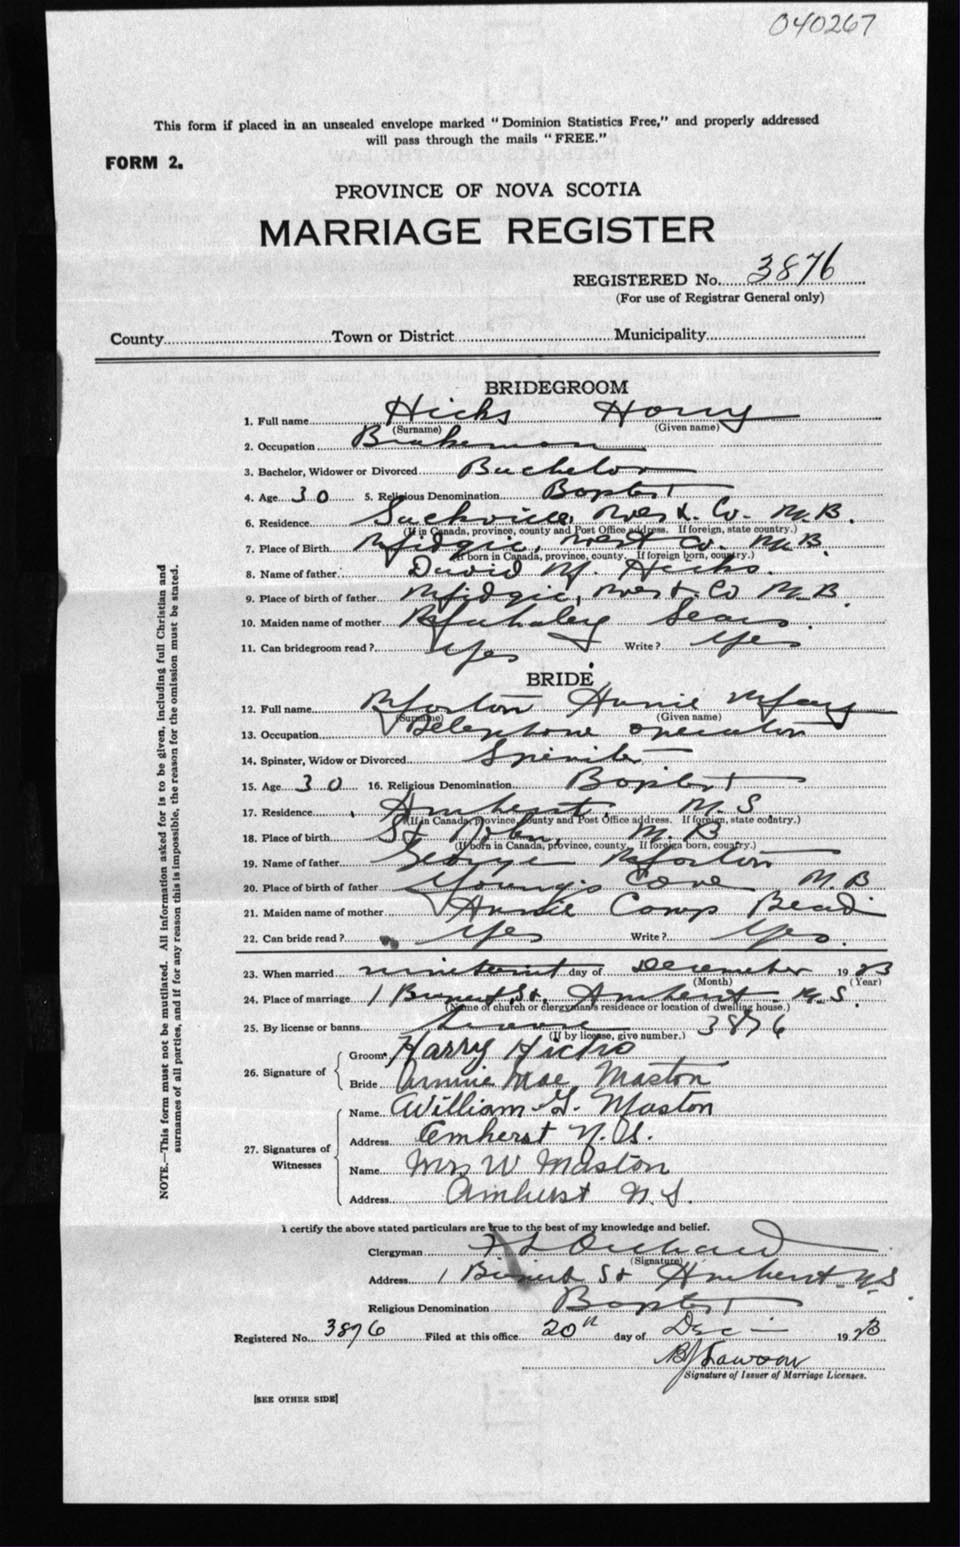 040267
This form if placed in an unsealed envelope marked "Dominion Statistics Free," and properly addressed
will pass through the mails "FREE."
FORM 2.
PROVINCE OF NOVA SCOTIA
MARRIAGE REGISTER
REGISTERED No. 3876
(For use of Registrar General only)
County Town or District Municipality
NOTE.—This form must not be mutilated. All information asked for is to be given, including full Christian and
surnames of all parties, and if for any reason this is impossible, the reason for the omission must be stated.
BRIDEGROOM
1. Full name Hicks Harry
(Surname) (Given name)
2. Occupation Brakeman
3. Bachelor, Widower or Divorced Bachelor
4. Age 30 5. Religious Denomination Baptist
6. Residence Sackville, West. Co. N.B.
(If in Canada, province, county and Post Office address. If foreign, state country.)
7. Place of Birth Midgic, West Co. N.B.
(If born in Canada, province, county. If foreign born, country.)
8. Name of father David M. Hicks.
9. Place of birth of father Midgic, West. Co N.B.
10. Maiden name of mother Sears.
11. Can bridegroom read? Yes Write? Yes
BRIDE
12. Full name Morton Annie May
(Surname) (Given name)
13. Occupation Telephone operator
14. Spinster, Widow or Divorced Spinster
15. Age 30 16. Religious Denomination Baptist
17. Residence Amherst, N.S
(If in Canada, province, county and Post Office address. If foreign, state country.)
18. Place of birth St John, N.B
(If born in Canada, province, county. If foreign born, country.)
19. Name of father George Morton
20. Place of birth of father Young's Cove N.B
21. Maiden name of mother Annie Camp
22. Can bride read? Yes Write? Yes.
23. When married day of December 1923
(Month) (Year)
24. Place of marriage 1 St. Amherst. N.S.
(Name of church or clergyman's residence or location of dwelling house.)
25. By license or banns License 3876
(If by license, give number.)
26. Signature of
Groom Harry Hicks
Bride Annie Mae Maston
27. Signatures of
Witnesses
Name William G. Maston
Address Amherst N.S.
Name Mrs W Maston
Address Amherst N.S.
I certify the above stated particulars are true to the best of my knowledge and belief.
Clergyman
(Signature)
Address 1 St Amherst. N.S
Religious Denomination Baptist
Registered No. 3876 Filed at this office 20th day of Dec 1923
Signature of Issuer of Marriage Licenses.
[SEE OTHER SIDE]